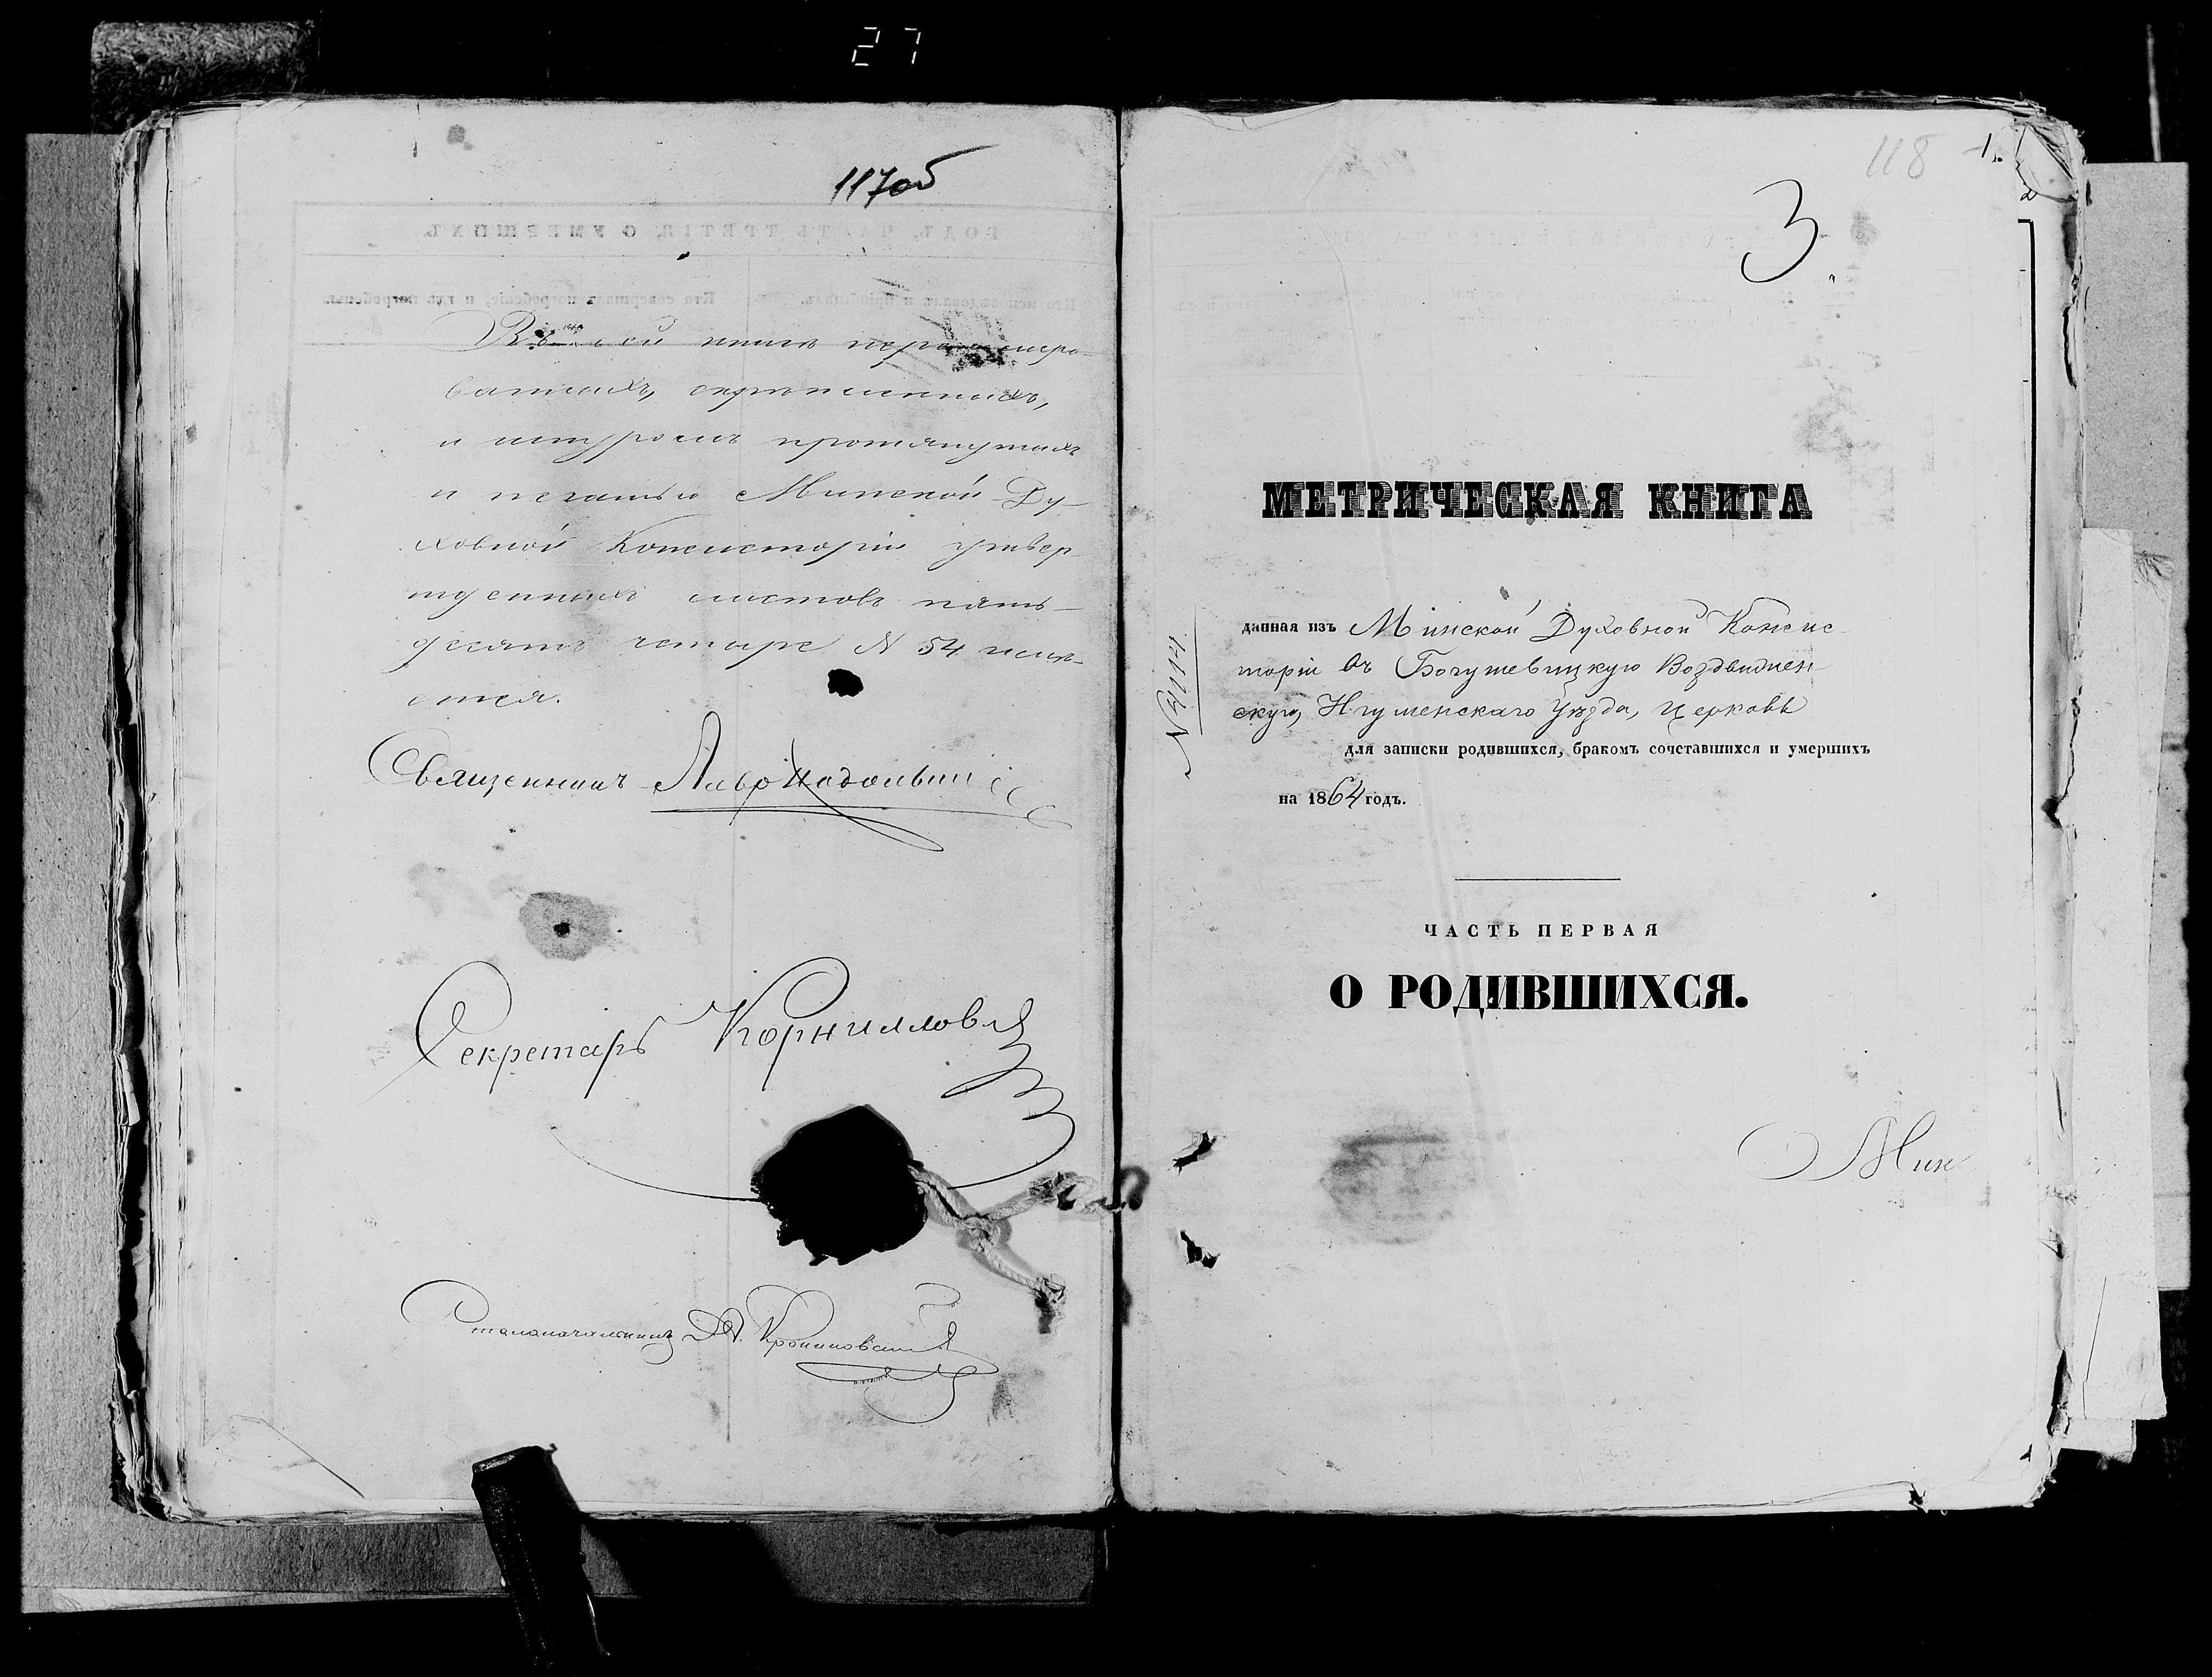 27
117об
Въ сей книгѣ перенумеро-
ванныхъ, скрѣпленныхъ,
и шнуромъ протянутыхъ
и печатью Минской Ду-
ховной Консисторіи утвер
жденныхъ листовъ пять-
десятъ четыре № 54 числи-
тся.
Священникъ
Секретарь Корнилловъ
Столоначальникъ
118
1.
3
МЕТРИЧЕСКАЯ КНИГА
данная изъ Минской Духовной Консис-
торіи въ Богушевицкую Воздвижен-
скую, Игуменскаго Уѣзда, церковь
для записки родившихся, бракомъ сочетавшихся и умершихъ
на 1864 годъ.
ЧАСТЬ ПЕРВАЯ
О РОДИВШИХСЯ.
Мин